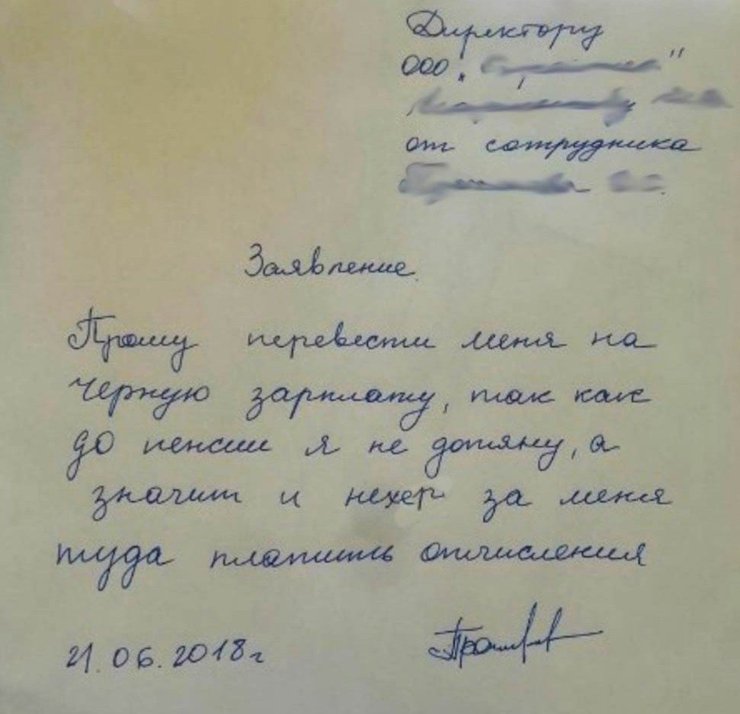 Директору
ООО „ "
от сотрудника
Заявление.
Прошу перевести меня на
черную зарплату, так как
до пенсии я не дотяну, а
значит и нехер за меня
туда платить отчисления
21.06.2018г